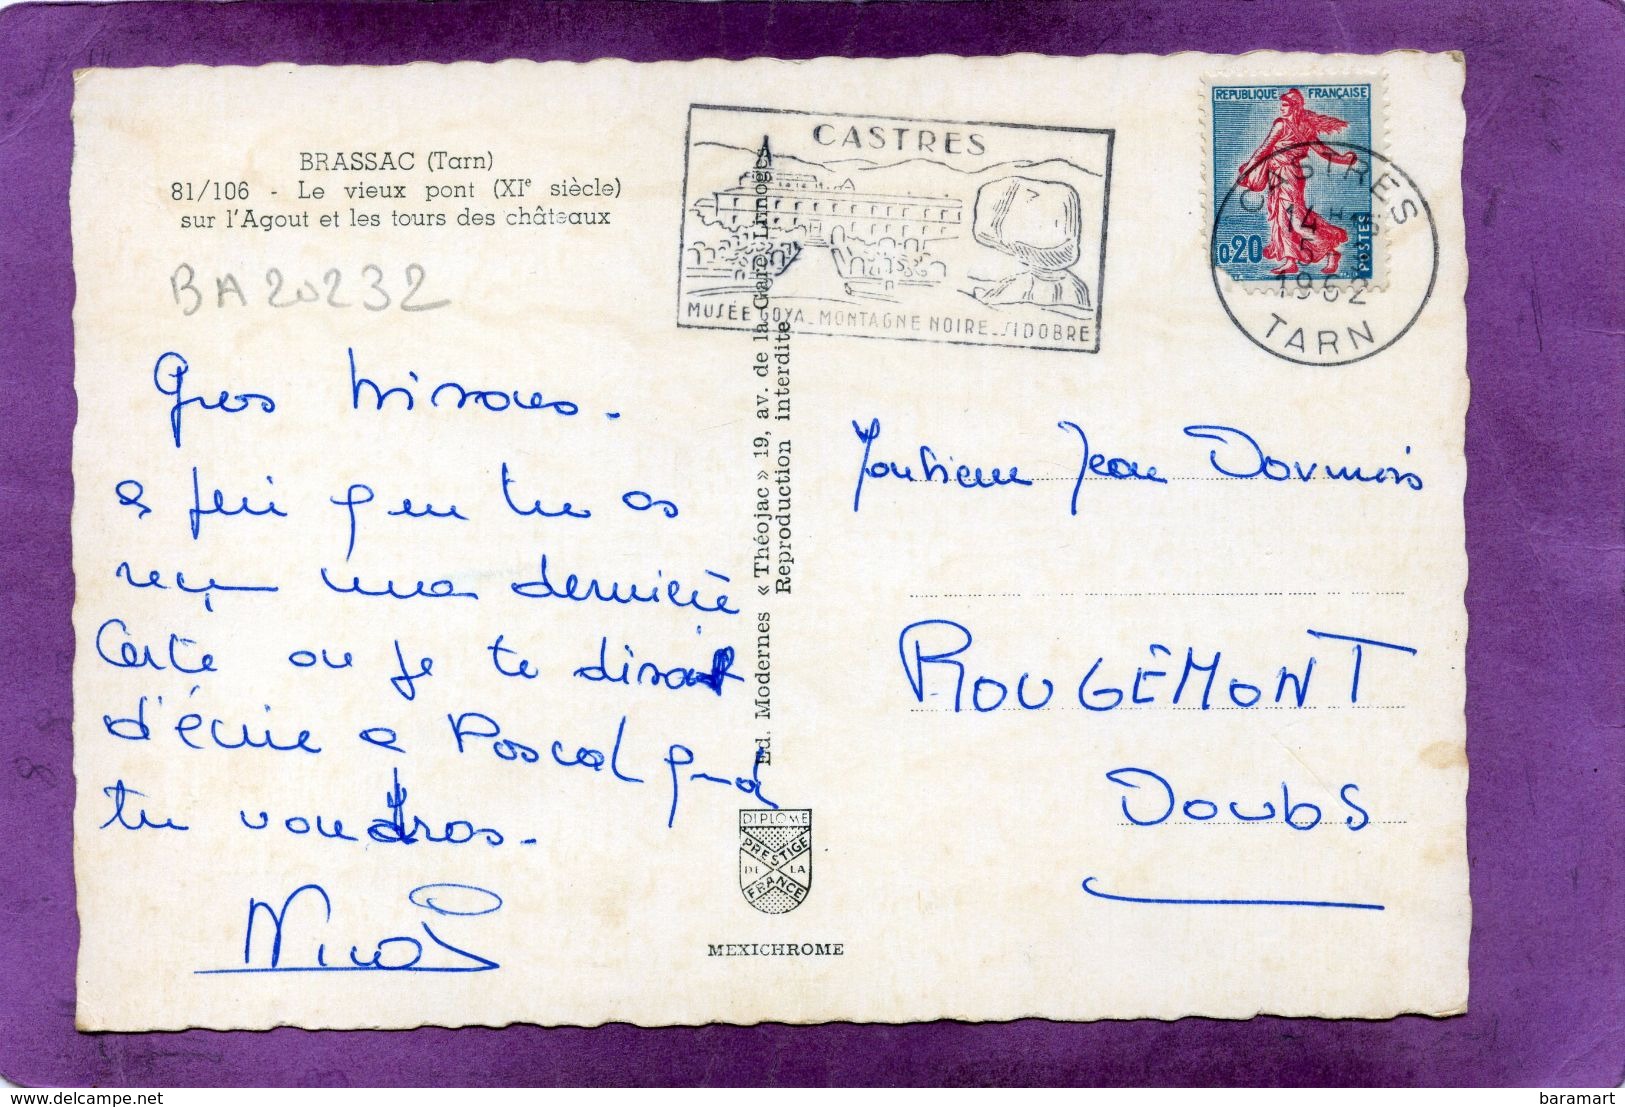 BRASSAC (Tarn)
81/106 - Le vieux pont (XIe siècle)
sur l'Agout et les tours des châteaux
BA20232
CASTRES
MUSÉE GOYA_MONTAGNE NOIRE_SIDOBRE
REPUBLIQUE FRANÇAISE
0,20
POSTES
CASTRES
14 H
5 -
1962
TARN
Gros bisous.
tu as
reçu ma dernière
Carte ou je te disait
d'écrire a Pascal quand
tu voudras.
Nicol
Ed. Modernes « Théojac » 19, av. de la Gare Limoges
Reproduction interdite
DIPLOME
PRESTIGE
DE LA
FRANCE
MEXICHROME
Monsieur Jean Dormois
ROUGEMONT
Doubs
baramart